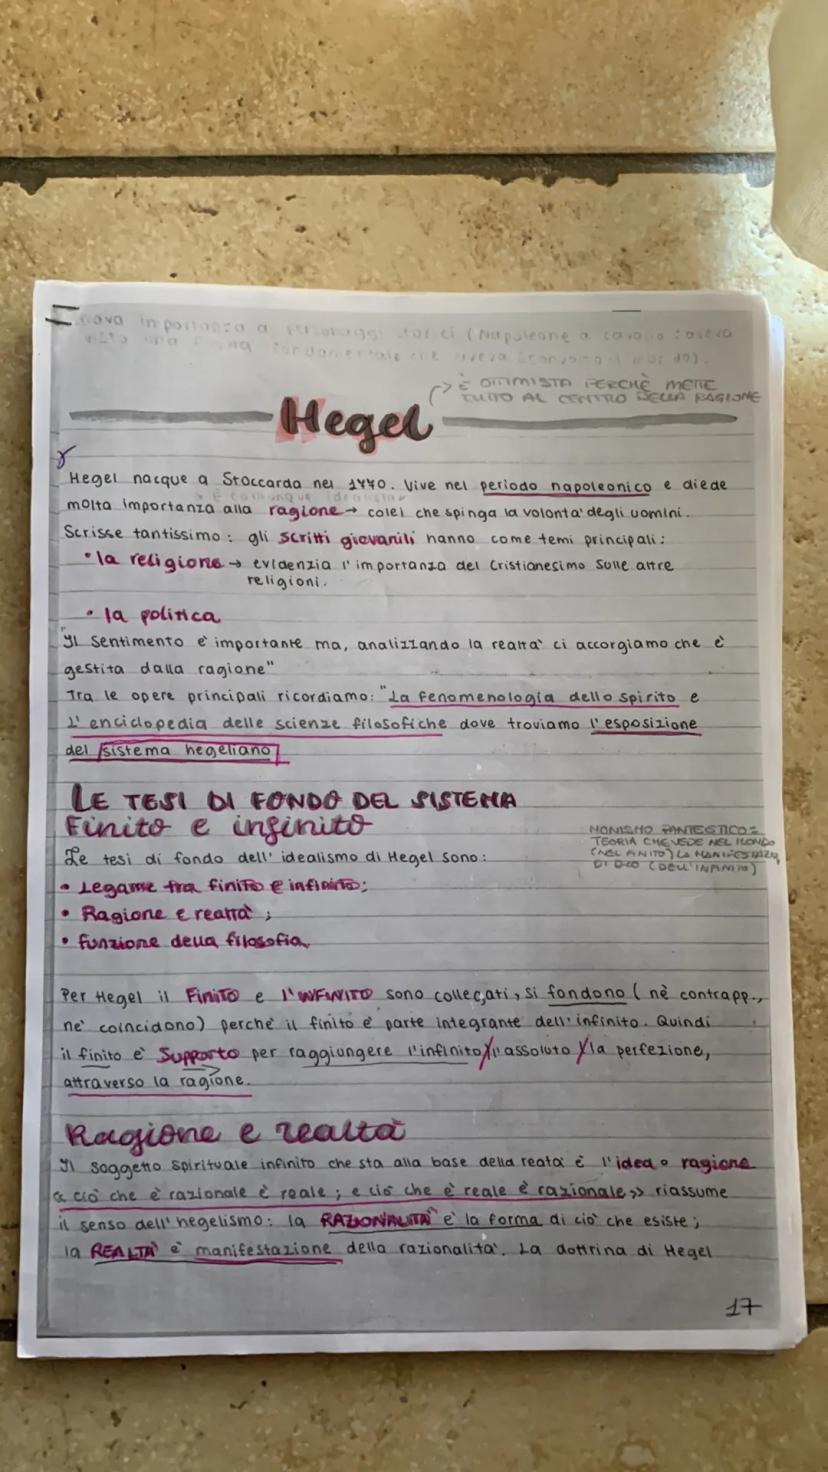 dava importanza a personaggi storici (Napoleone a cavallo: aveva
visto una figura fondamentale che aveva il mondo).
→ È OTTIMISTA PERCHÈ METTE
TUTTO AL CENTRO DELLA RAGIONE
Hegel
Hegel nacque a Stoccarda nel 1770. Vive nel periodo napoleonico e diede
è comunque idealista
molta importanza alla ragione → colei che spinga la volontà degli uomini.
Scrisse tantissimo: gli scritti giovanili hanno come temi principali:
• la religione → evidenzia l'importanza del Cristianesimo sulle altre
religioni.
• la politica
"Il sentimento è importante ma, analizzando la realtà ci accorgiamo che è
gestita dalla ragione"
Tra le opere principali ricordiamo: "La fenomenologia dello spirito e
L'enciclopedia delle scienze filosofiche dove troviamo l'esposizione
del sistema hegeliano
LE TESI DI FONDO DEL SISTEMA
Finito e infinito
MONISMO PANTEISTICO =
TEORIA CHE VEDE NEL MONDO
(NEL FINITO) LA MANIFESTAZ.
DI DIO (DELL'INFINITO)
Le tesi di fondo dell'idealismo di Hegel sono:
• Legame tra finito e infinito;
• Ragione e realtà;
• funzione della filosofia.
Per Hegel il FINITO e l'INFINITO sono collegati, si fondono (nè contrapp.,
nè coincidono) perchè il finito è parte integrante dell'infinito. Quindi
il finito è supporto per raggiungere l'infinito/l'assoluto/la perfezione,
attraverso la ragione.
Ragione e realtà
Il soggetto spirituale infinito che sta alla base della reatà è l'idea o ragione
« ciò che è razionale è reale; e ciò che è reale è razionale » riassume
il senso dell'hegelismo: la RAZIONALITÀ è la forma di ciò che esiste;
la REALTÀ è manifestazione della razionalità. La dottrina di Hegel
17